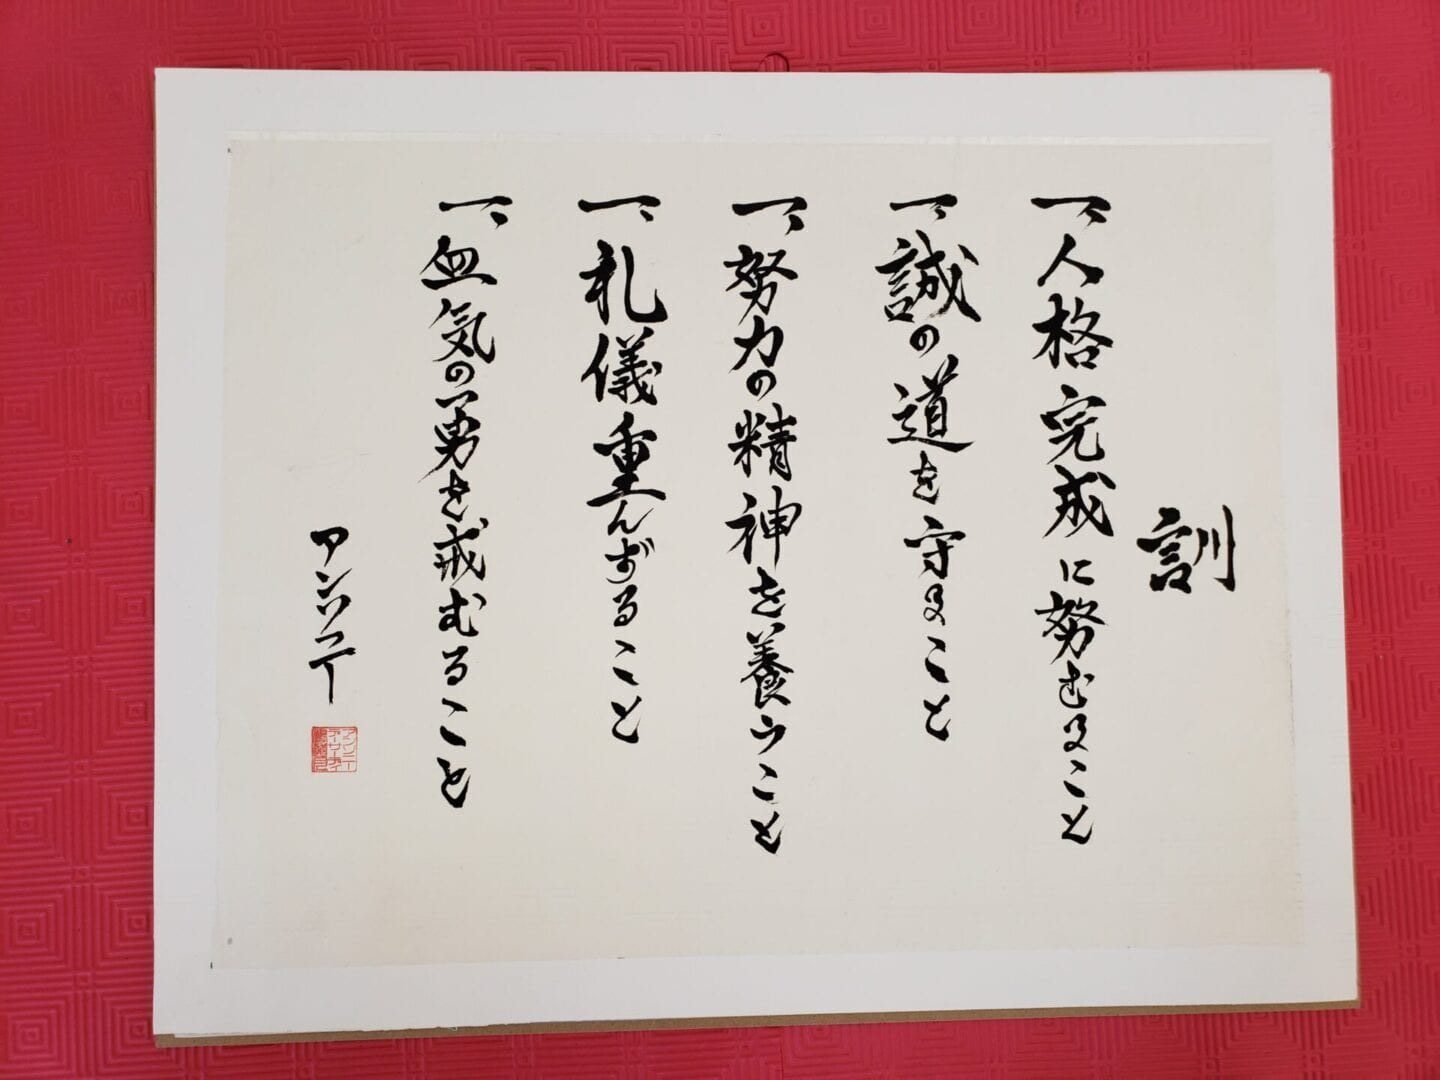 訓
一、人格完成に努むること
一、誠の道を守ること
一、努力の精神を養うこと
一、礼儀重んずること
一、血気の勇を戒むること
アンソニー